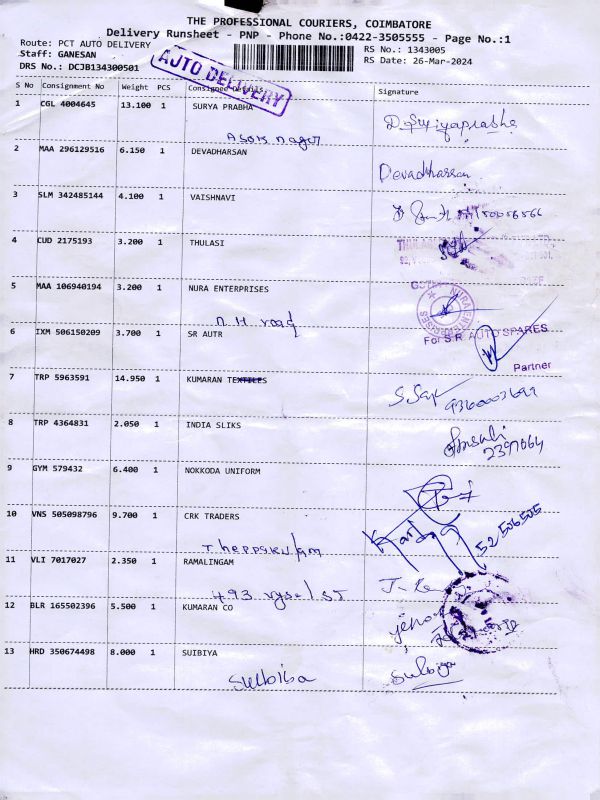 THE PROFESSIONAL COURIERS, COIMBATORE
Delivery Runsheet - PNP - Phone No.:0422-3505555 - Page No.:1
Route: PCT AUTO DELIVERY
Staff: GANESAN
DRS No.: DCJB134300501
RS No.: 1343005
RS Date: 26-Mar-2024
AUTO DELIVERY
S No Consignment No Weight PCS Consigned Details Signature
1 CGL 4004645 13.100 1 SURYA PRABHA
2 MAA 296129516 6.150 1 DEVADHARSAN Devadharsan
3 SLM 342485144 4.100 1 VAISHNAVI
4 CUD 2175193 3.200 1 THULASI
5 MAA 106940194 3.200 1 NURA ENTERPRISES
NURA ENTERPRISES
N.H. road
6 IXM 506150209 3.700 1 SR AUTR
For S.R AUTO SPARES
Partner
7 TRP 5963591 14.950 1 KUMARAN TEXTILES
8 TRP 4364831 2.050 1 INDIA SLIKS
9 GYM 579432 6.400 1 NOKKODA UNIFORM
10 VNS 505098796 9.700 1 CRK TRADERS
52506505
Theppakulam
11 VLI 7017027 2.350 1 RAMALINGAM
12 BLR 165502396 5.500 1 KUMARAN CO
13 HRD 350674498 8.000 1 SUIBIYA